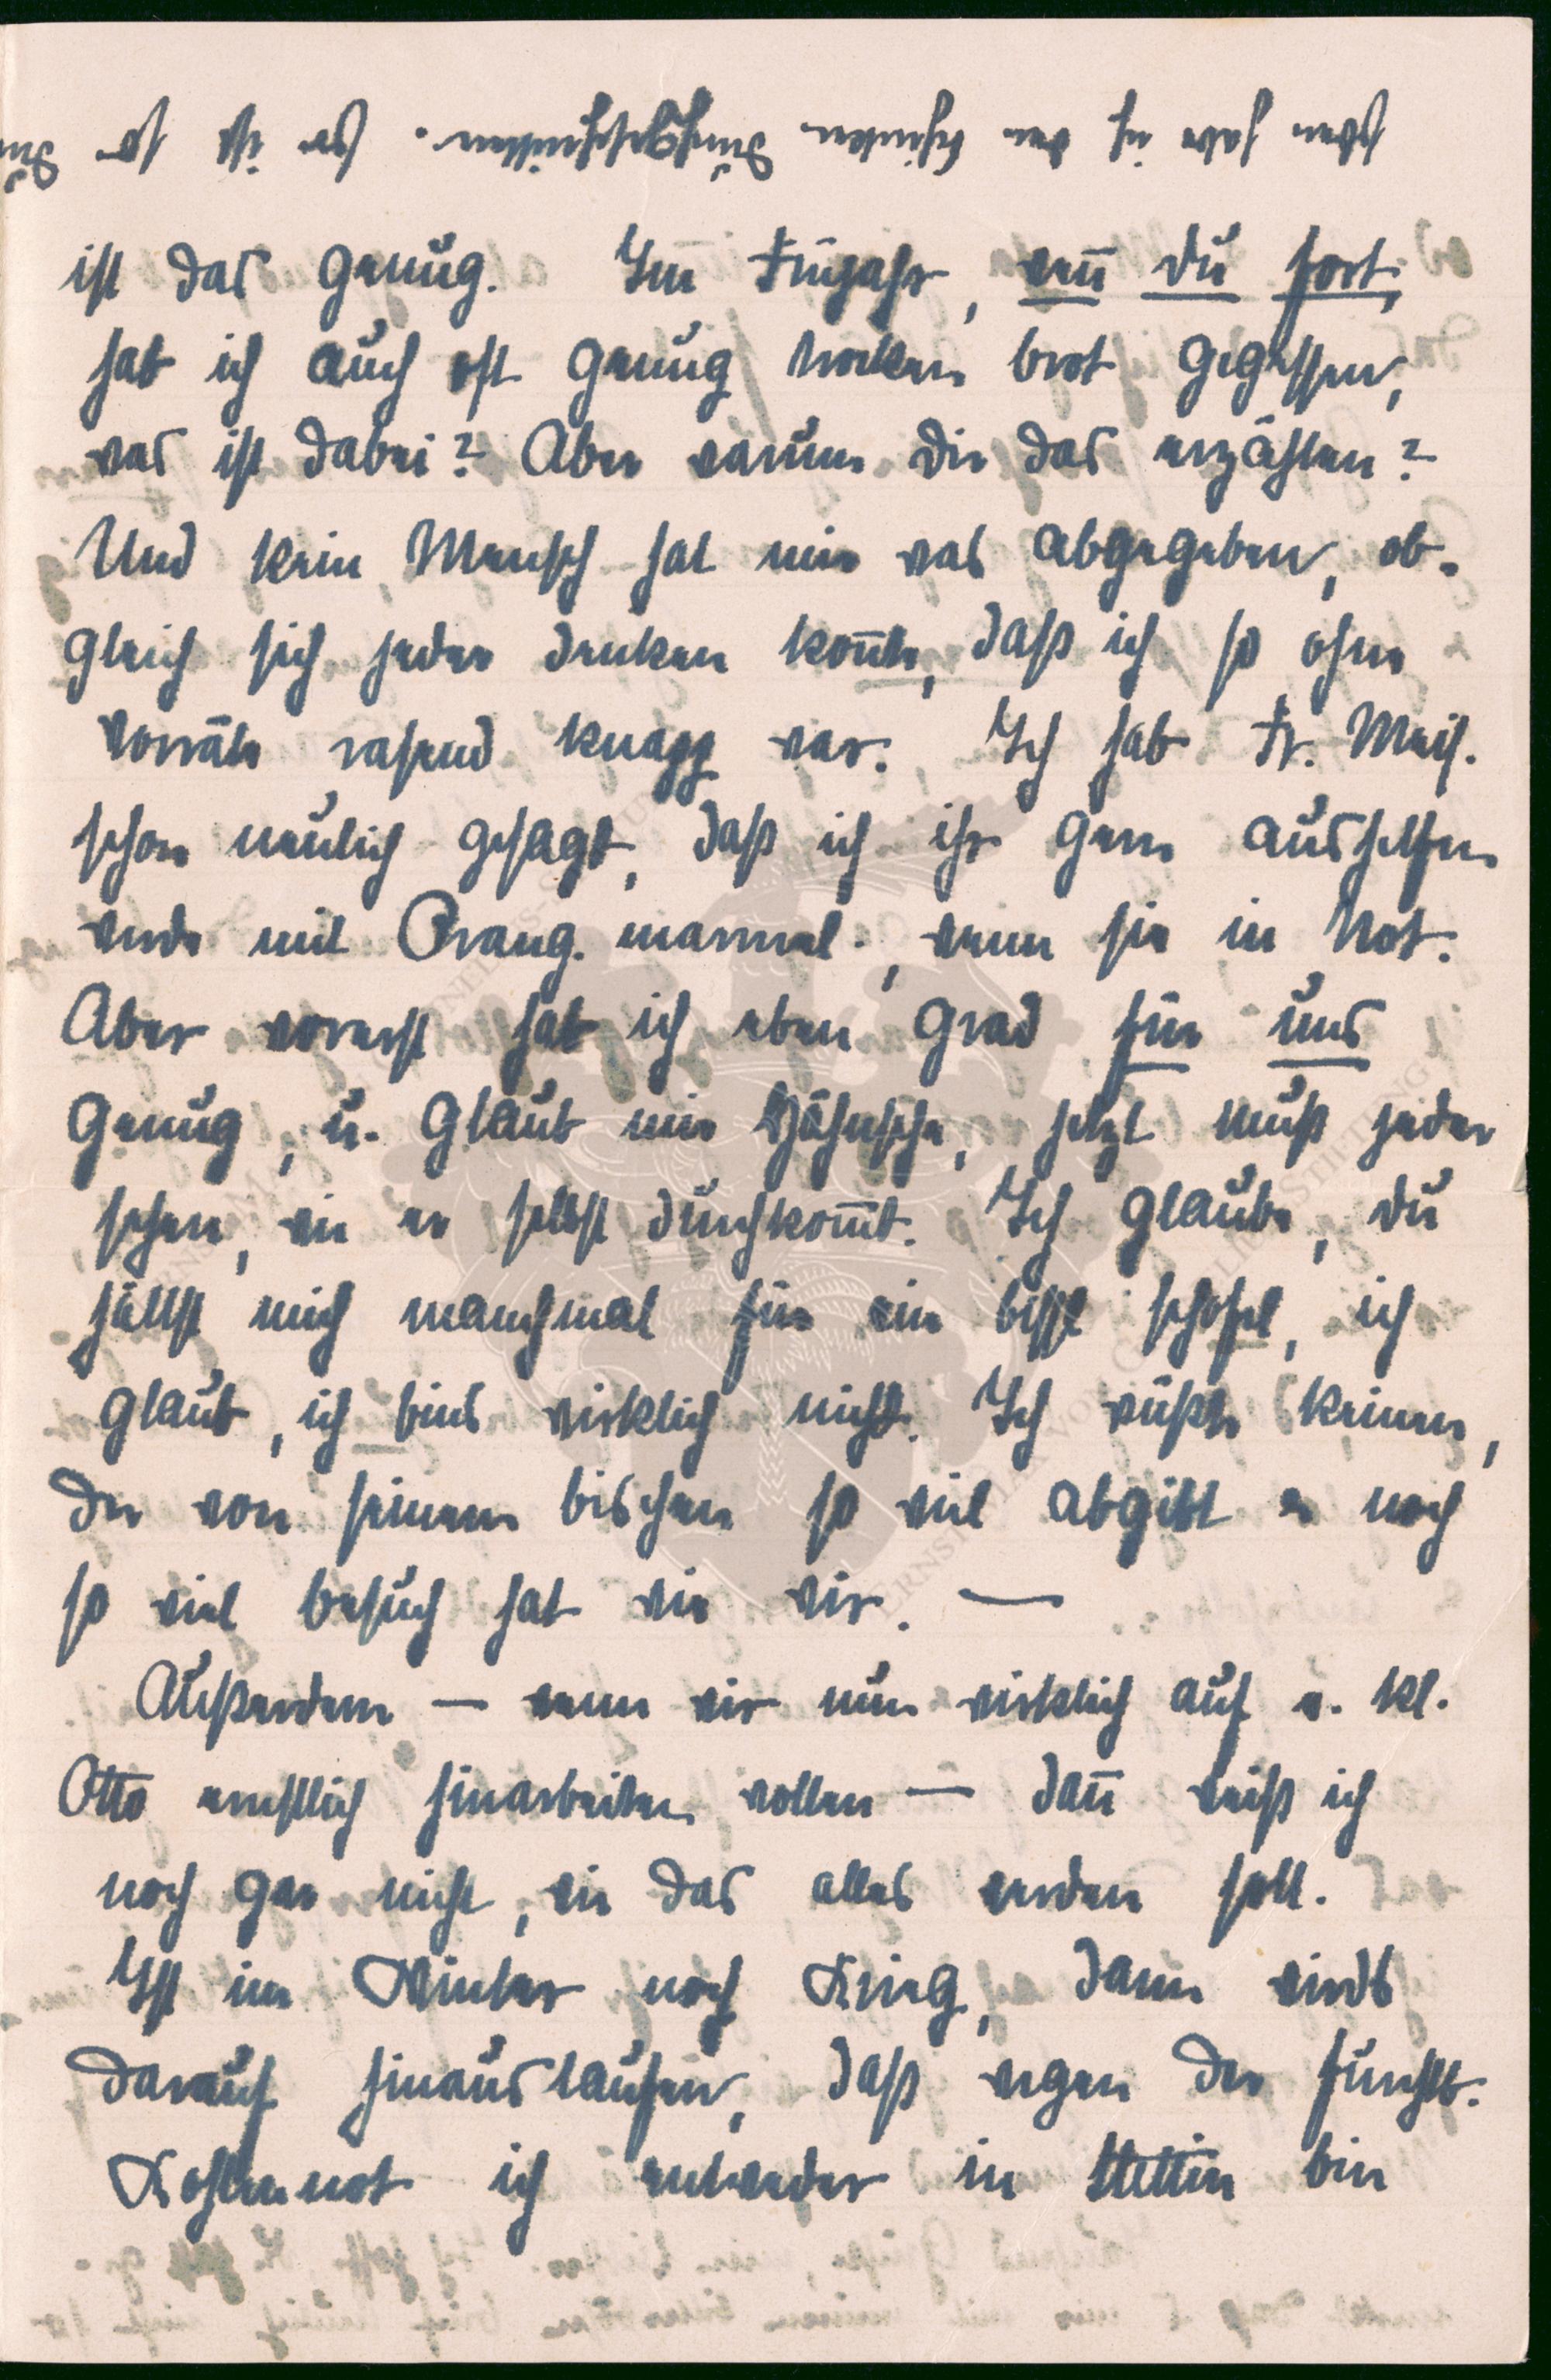 schon habe ich den Schinken durchgeschnitten. Es ist so
ist das genug. Im Frühjahr, wen̄ du fort,
hab ich auch oft genug trocken brot gegessen,
was ist dabei? Aber warum dir das erzählen?
Und kein Mensch hat mir was abgegeben, ob-
gleich sich jeder denken kon̄te, daß ich so ohne
vorräte rasend knapp war. Ich hab Fr. Meich.
schon neulich gesagt, daß ich ihr gern aushelfen
werde mit Orang. marmel., wenn sie in Not.
Aber vorerst hab ich eben grad für uns
genug, u. glaub mir Höhnsche, jetzt muß jeder
sehen, wie er selbst durchkom̄t. Ich glaube, du
hältst mich manchmal für ein bissl schofel, ich
glaub, ich bins wirklich nicht. Ich wüßte keinen,
der von seinem bischen so viel abgibt u noch
so viel besuch hat wie wir. —
Außerdem — wenn wir nun wirklich auf u. kl.
Otto ernstlich hinarbeiten wollen — dan̄ weiß ich
noch gar nicht, wie das alles werden soll.
Ist im Winter noch Krieg, dann wirds
darauf hinauslaufen, daß wegen der furchtb.
Kohlennot ich entweder in Stettin bin